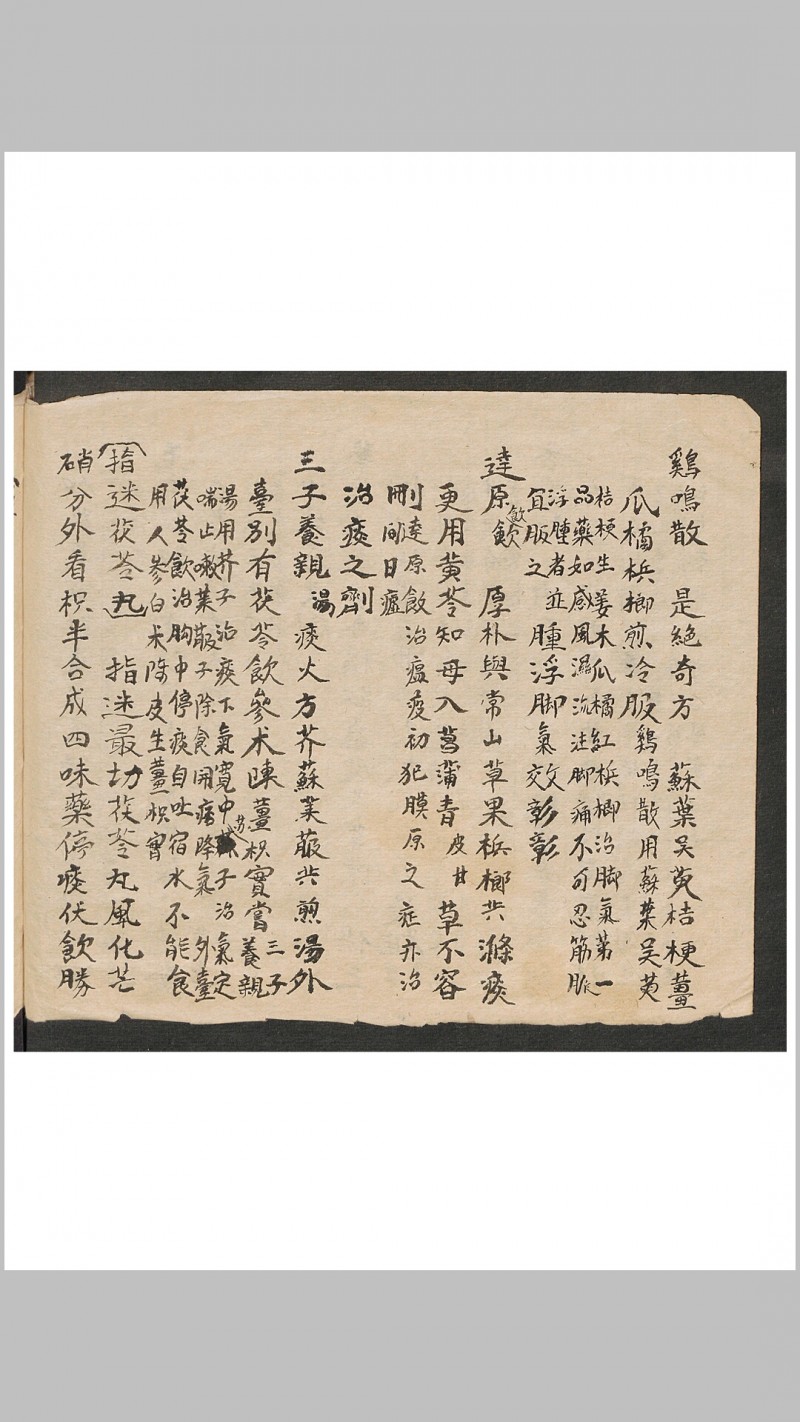 鷄鳴散 是絕奇方 蘇葉吴萸桔梗薑
瓜橘梹榔煎冷服鷄鳴散用蘇葉吴萸
桔梗生姜木瓜橘紅梹榔治脚氣第一
品藥如感風濕流注脚痛不可忍筋脈
浮腫者並
宜服之
腫浮脚氣效彰彰
達原飲 厚朴與常山草果梹榔共滌痰
更用黄芩知母入菖蒲青皮甘草不容
刪達原飲治瘟疫初犯膜原之症亦治
間日瘟
治痰之劑
三子養親湯 痰火方芥蘇萊菔共煎湯外
臺別有茯苓飲參术陳薑枳實嘗三子養親
湯用芥子治痰下氣寬中苏子治氣定
喘止嗽萊菔子除食開痞降氣外臺
茯苓飲治胸中停痰自吐宿水不能食
用人參白术陳皮生薑枳實
指迷茯苓丸 指迷最切茯苓丸風化芒
硝分外看枳半合成四味藥停痰伏飲勝